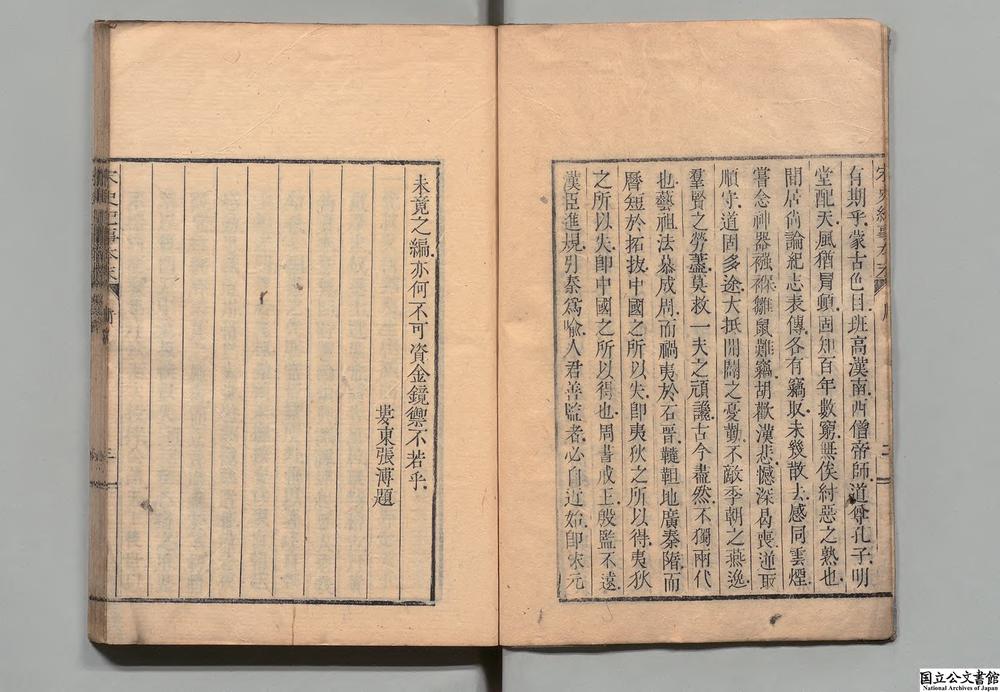 有期乎蒙古色目班高漢南西僧帝師道尊孔子明
堂配天風猶冒頓固知百年數窮無俟紂惡之熟也
閒居尚論紀志表傳各有竊取未幾散去感同雲煙
嘗念神器襁褓雛鼠難竊胡歡漢悲憾深曷喪逆取
順守道固多途大抵開闢之憂勤不敵季朝之燕逸
羣賢之勞藎莫救一夫之頑讒古今盡然不獨兩代
也藝祖法慕成周而禍夷於石晉韃靼地廣秦隋而
曆短於拓拔中國之所以失即夷狄之所以得夷狄
之所以失即中國之所以得也周書戒王殷監不遠
漢臣進規引秦爲喻人君善監者必自近始即宋元
未竟之編亦何不可資金鏡禦不若乎
婁東張溥題
宋史紀事本末 序 三
国立公文書館
National Archives of Japan